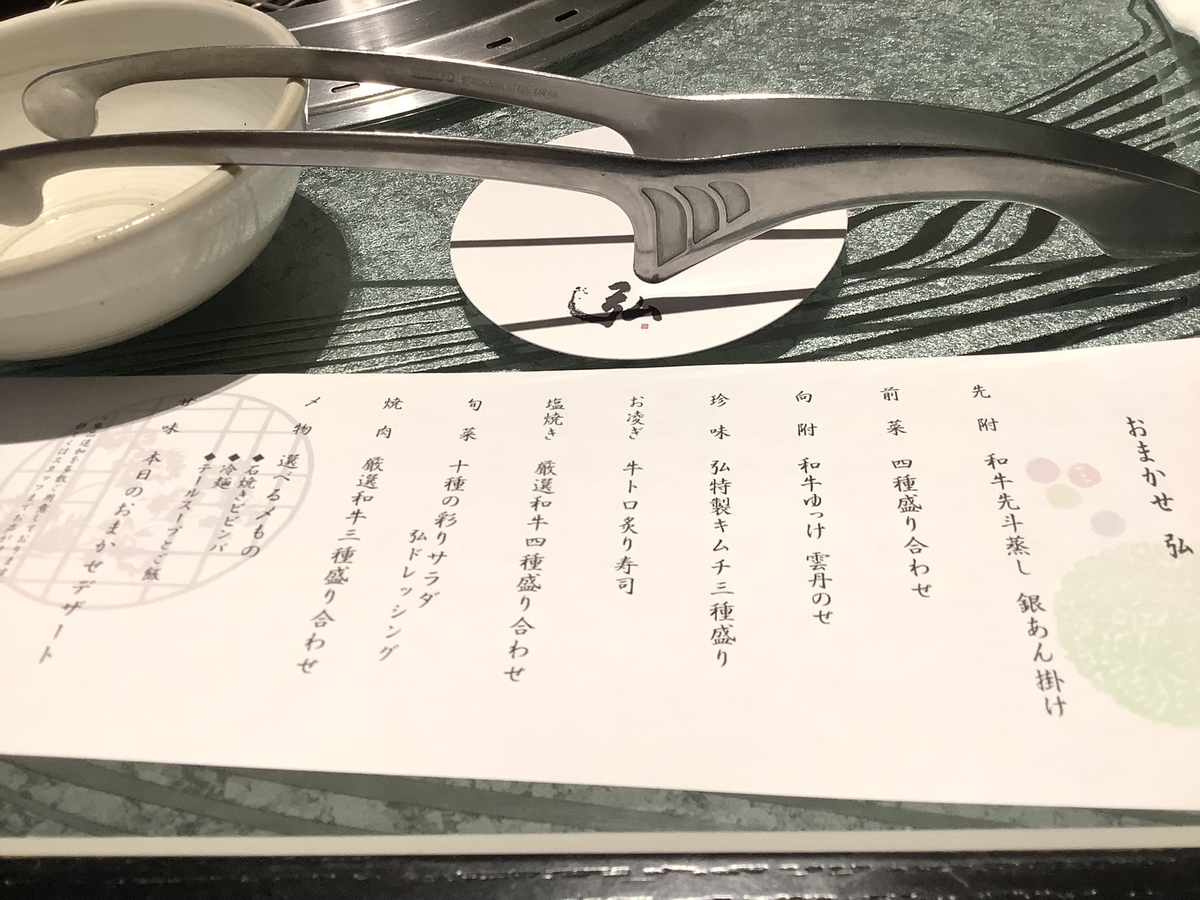 おまかせ 弘
先附 和牛先斗蒸し 銀あん掛け
前菜 四種盛り合わせ
向附 和牛ゆっけ 雲丹のせ
珍味 弘特製キムチ三種盛り
お凌ぎ 牛トロ炙り寿司
塩焼き 厳選和牛四種盛り合わせ
旬菜 十種の彩りサラダ
弘ドレッシング
焼肉 厳選和牛三種盛り合わせ
〆物 選べる〆もの
◆石焼きビビンバ
◆冷麺
◆テールスープとご飯
甘味 本日のおまかせデザート
弘